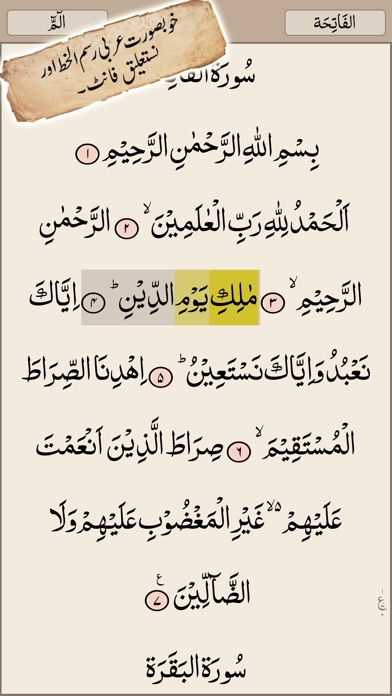 الٓمّٓ
الفَاتِحَة
خوبصورت عربی رسم الخط اور
نستعلیق فانٹ۔
سُورَة الفَا
بِسْمِ اللهِ الرَّحْمٰنِ الرَّحِيْمِ ۱
اَلْحَمْدُ لِلّٰهِ رَبِّ الْعٰلَمِيْنَ ۙ ۲ الرَّحْمٰنِ
الرَّحِيْمِ ۙ ۳ مٰلِكِ يَوْمِ الدِّيْنِ ؕ ۴ اِيَّاكَ
نَعْبُدُ وَاِيَّاكَ نَسْتَعِيْنُ ؕ ۵ اِهْدِنَا الصِّرَاطَ
الْمُسْتَقِيْمَ ۙ ۶ صِرَاطَ الَّذِيْنَ اَنْعَمْتَ
عَلَيْهِمْ ۙ۵ غَيْرِ الْمَغْضُوْبِ عَلَيْهِمْ وَلَا
الضَّآلِّيْنَ ۷ ع
سُورَة البَقَرَة